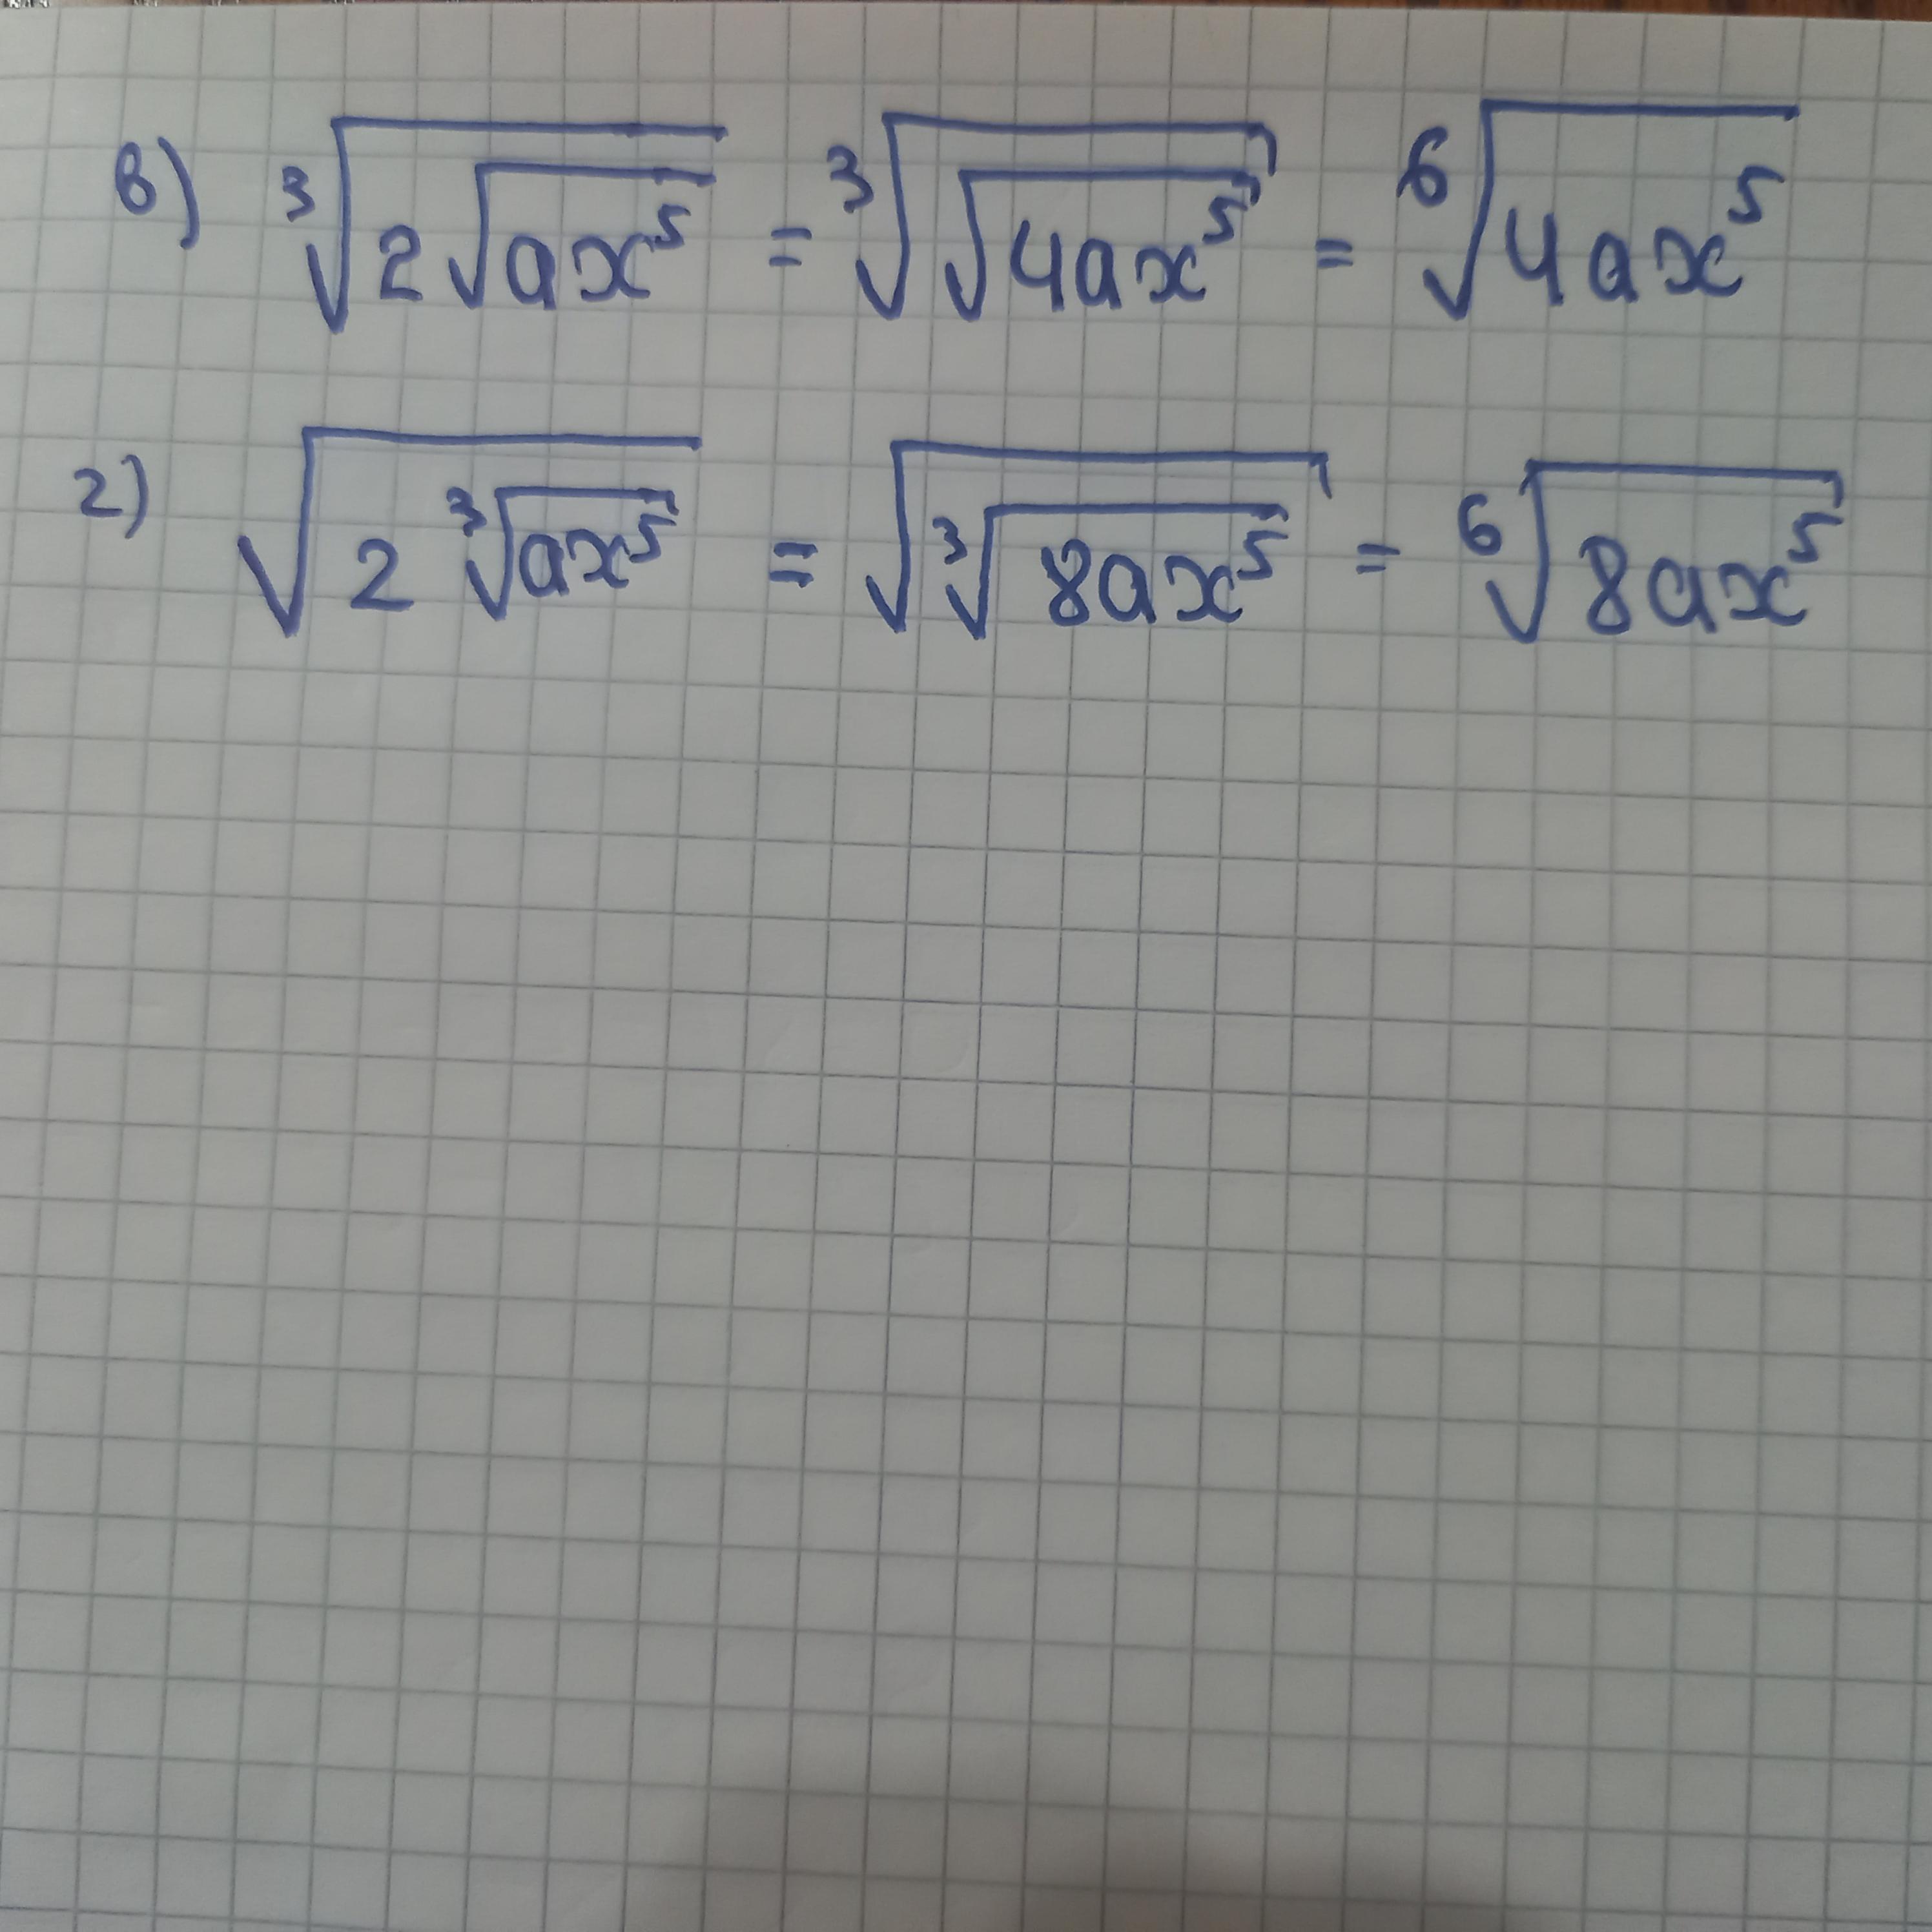 в) ∛(2√(ax⁵)) = ∛(√(4ax⁵)) = ⁶√(4ax⁵)
г) √(2∛(ax⁵)) = √(∛(8ax⁵)) = ⁶√(8ax⁵)